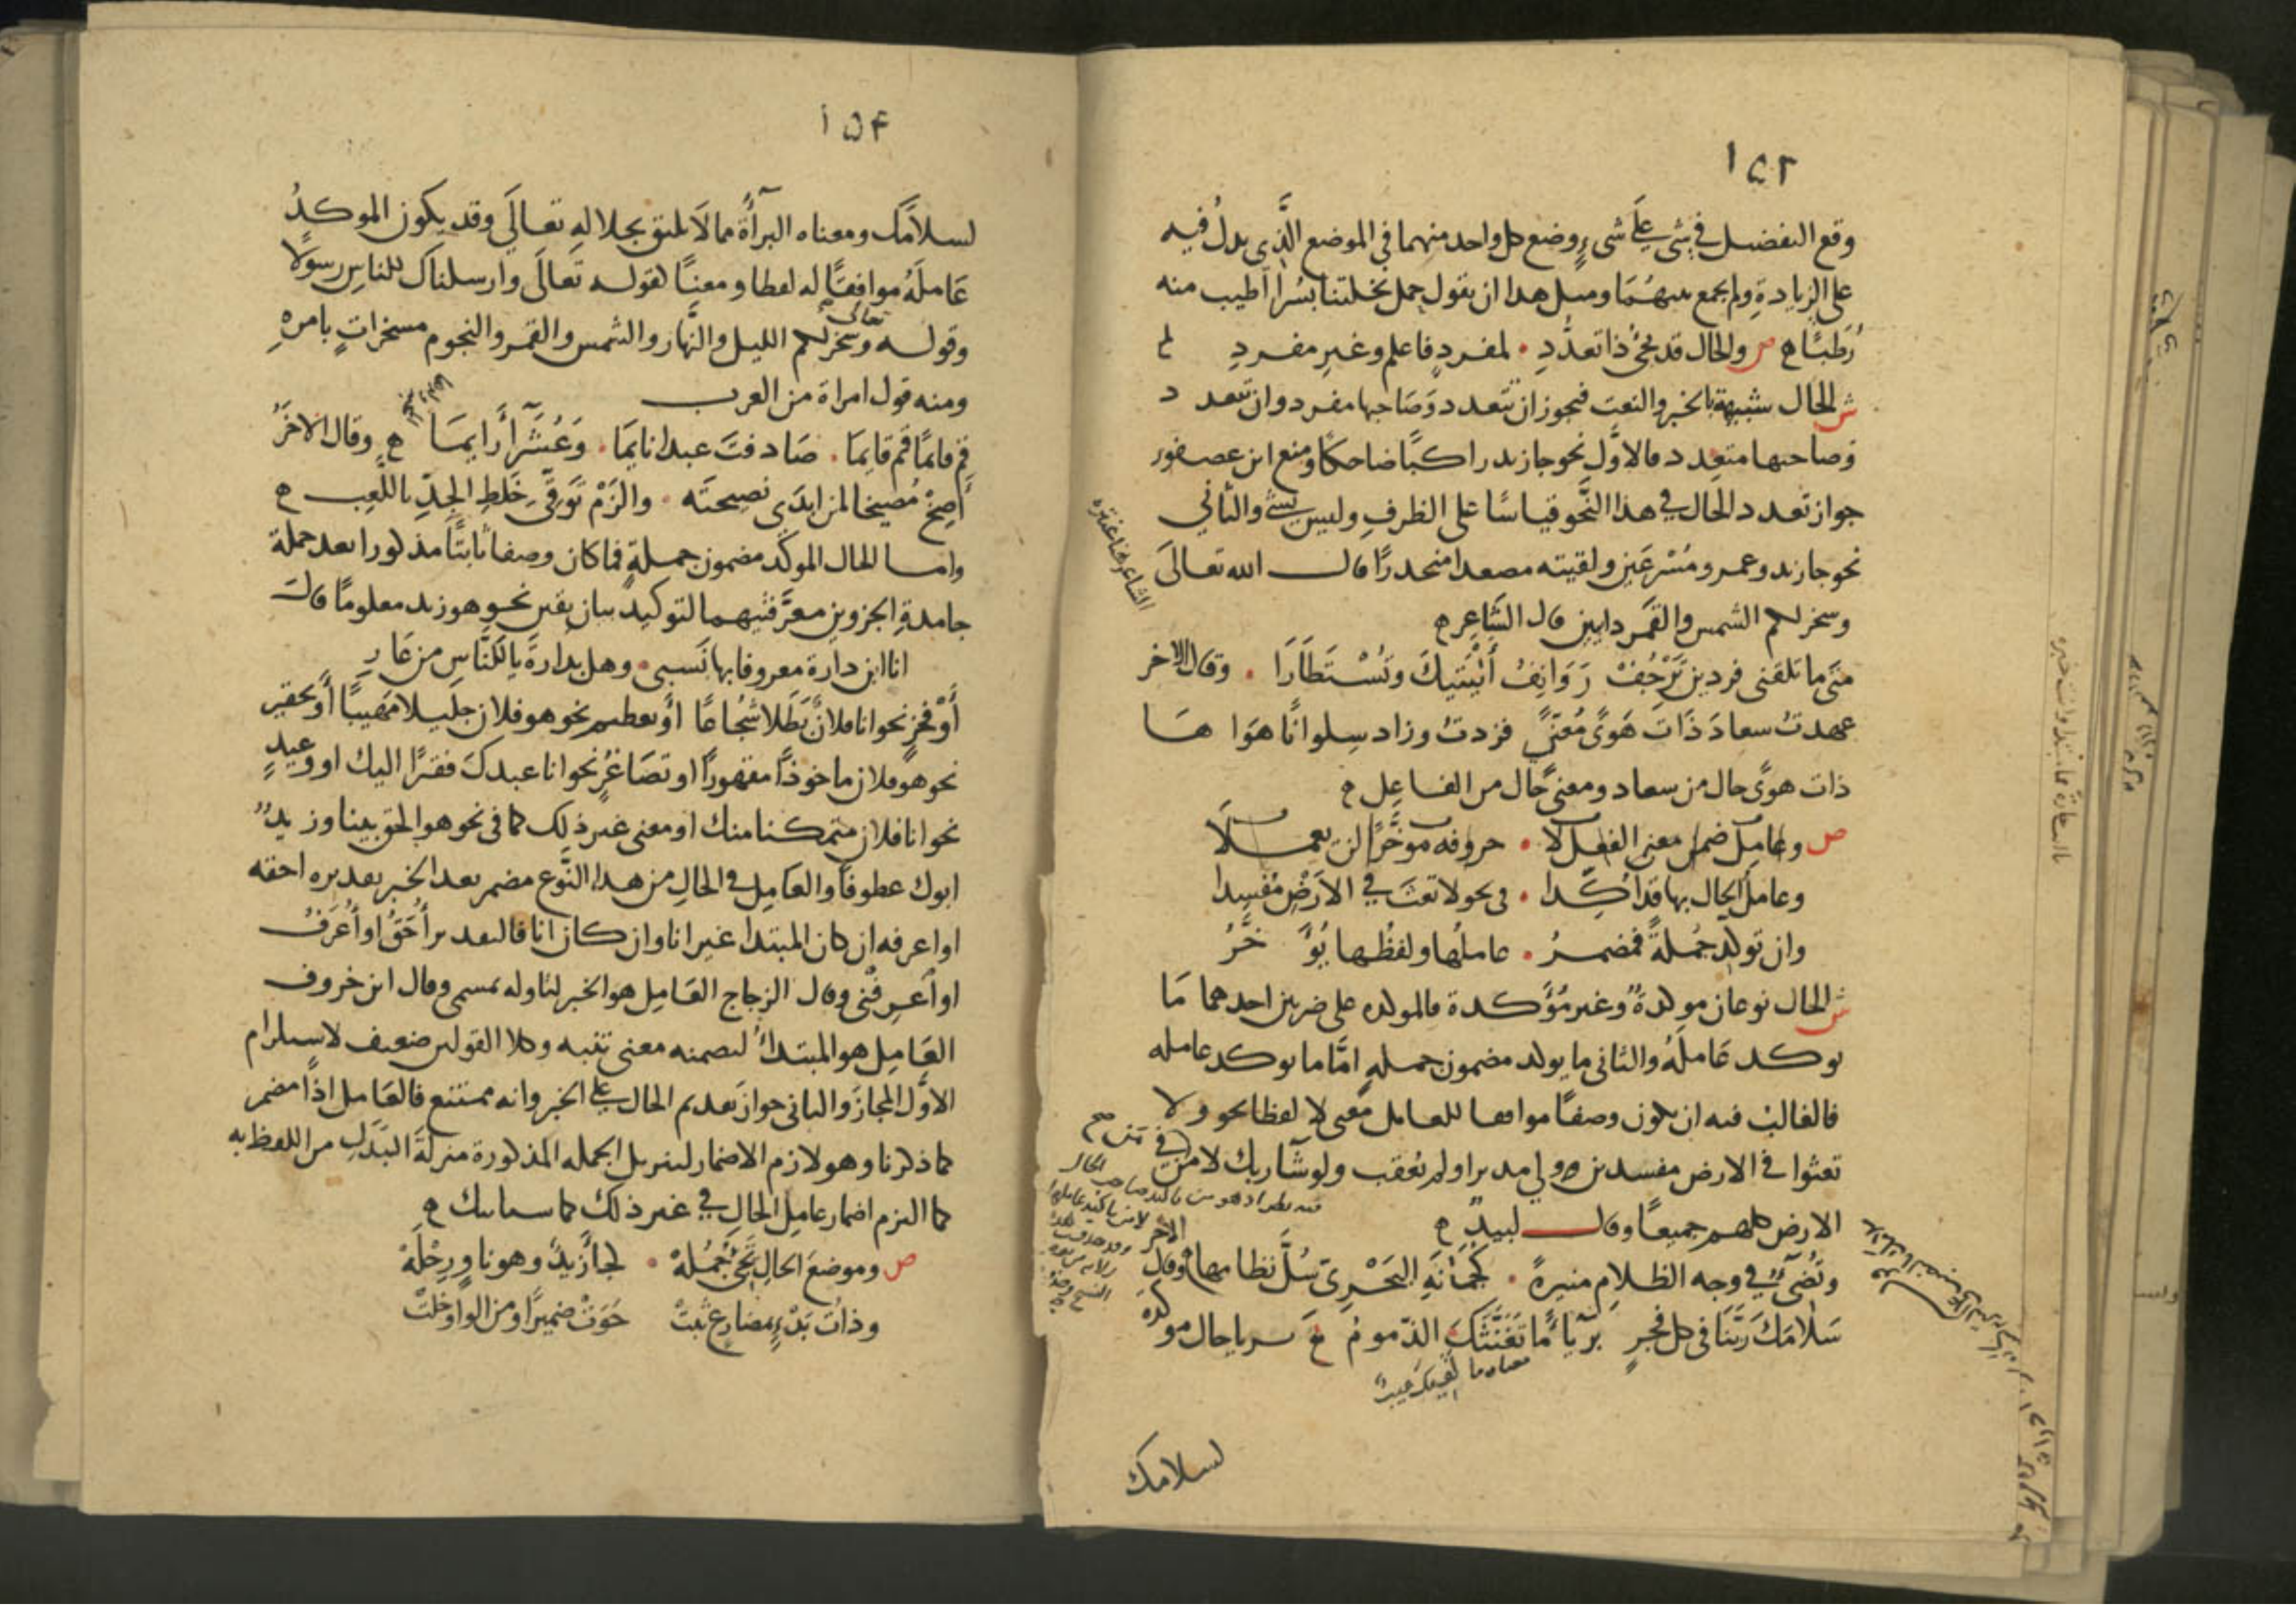 ١٥٢
وقع التفضيل في شي على شيءٍ وضع كل واحد منهما في الموضع الَّذي يدل فيه
على الزيادةِ ولم يجمع بينهُمَا ومثل هذا ان تقول حمل نخلتنا بُسْرًا أطيب منه
رُطَبًا ه ص والحال قد يجئُ ذا تعدُّدِ . لمفردٍ فاعلم وغيرِ مفردِ
ش الحال شبيهة بالخبر والنعت فيجوز ان تتعدد وَصَاحبها مفرد وان تتعدد
وصاحبها متعدد فالاوَّل نحو جا زيد راكبًا ضاحكًا ومنع ابن عصفور
جواز تعدد الحال في هذا النَّحو قياسًا على الظرفِ وليس بشي والثاني
نحو جا زيد وعمرو مُسْرعَين ولقيته مصعدا منحدرًا قال الله تعالَى
وسخر لكم الشمس والقمَر دايبين قال الشَّاعِر ه
متَى ما تلقَني فردين تَرْجُفْ رَوَانِفُ أَلْيَتَيكَ وتُسْتَطَارَا . وقال الاخر
عهدتُ سعادَ ذَاتَ هَوىً مُعَنًّى فزدتُ وزاد سِلوانًا هَوَا هَا
ذات هوىً حال من سعاد ومعنىً حال من الفاعِل ه
ص وعامِل ضمن معنى الفعل لا . حروفه موَخَّرًا لن يعملَا
وعاملُ الحال بها قد اُكِّدا . في نحو لا تعثَ في الارْضِ مُفسِدا
وان توكد جُملةً فمضمرُ . عاملُها ولفظُها يُؤَخَّرُ
ش الحال نوعان موكدةٌ وغير مُؤَكدة فالموكده على ضربين احدهما مَا
يوكد عَاملَهُ والثاني ما يوكد مضمون جملهٍ امَّا ما يوكد عامله
فالغالبُ فيه ان يكون وصفًا موافقا للعامل معنى لا لفظا نحو ولا
تعثوا في الارض مفسدين وولي مدبرا ولم يُعقب ولو شآ ربك لآمن من في
الارض كلهم جميعًا وقال لبيدٌ ه
وتُضيءُ في وجه الظلامِ منيرةً . كجُمَانَةِ البَحْرِيّ سُلَّ نظامها وقال الاخر
سَلامَكَ رَبَّنَا في كل فجرٍ بَرِيًّا مَا تَغَنَّثَكَ الذّمومُ بريا حال موكدة
لسلامك
الشاعر هنا عنتره
١٥٤
لسلامك ومعناه البرآءةُ مما لَا يليق بجلالهِ تعالَى وقد يكون الموكدُ
عَاملَهُ موافقًا له لفظا ومعنًا كقوله تَعالَى وارسلناك للناسِ رسولًا
وقوله تعالى وسخر لكم الليل والنَّهار والشمس والقمر والنجوم مسخراتٍ بامرهِ
ومنه قول امراة من العرب
قم قايمًا قم قايمَا . صَادفتَ عبدا نايمَا . وَعُشَرَآءَ رَايمَا ه وقال الاخرُ
أَصِخْ مُصيخا لمن ابدَى نصيحتَه . والزَمْ تَوَقّي خَلْطِ الجِدِّ باللَّعِب ه
واما الحال الموكّد مضمون جملةٍ فما كان وصفا ثابتًا مذكورا بعد جملة
جامدةِ الجزوين معرَّفتيهما لتوكيد بيان يقين نحو هو زيد معلومًا قالَ
انا ابن دارة معروفا بها نَسبي . وهل بدارةَ يا لَلنَّاسِ من عَارِ
أَوْ فخرٍ نحو انا فلانٌ بَطَلا شُجَاعًا أو تعظيم نحو هو فلان جليلا مَهيبًا أو تحقير
نحو هو فلان ماخوذًا مقهورًا او تصَاغُرٍ نحو انا عبدكَ فقيرًا اليك او وَعيدٍ
نحو انا فلان متمكنا منك او معنى غير ذلك كما في نحو هو الحق بينا وزيدٌ
ابوك عطوفًا والعَامِل في الحالِ من هذا النَّوع مضمر بعد الخبر تقديره احقه
او اعرفه ان كان المبتدا غير انا وان كان انا فالتقدير أُحَقُّ او أُعرَفُ
او أعرِفْني وقال الزجاج العَامِل هو الخبر لتاوله بمسمى وقال ابن خروف
العَامِل هو المبتدأُ لتضمنه معنى تنبيه وكلا القولين ضعيف لاستلزام
الاوَّل المجازَ والثاني جوازَ تقديم الحال على الخبر وانه ممتنع فالعَامل اذًا مضمر
كما ذكرنا وهو لازم الاضمار لتنزيل الجمله المذكورة منزلةَ البَدَلِ من اللفظ به
كما التزم اضمار عامِل الحالِ في غير ذلك كما سياتيك ه
ص وموضعَ الحالِ تَجيُ جُمْلَهْ . كجا زيدٌ وهو ناوٍ رِحْلَهْ
وذاتُ بَدْءٍ بمضارعٍ ثبتْ حَوَتْ ضميرًا ومن الواو خلتْ